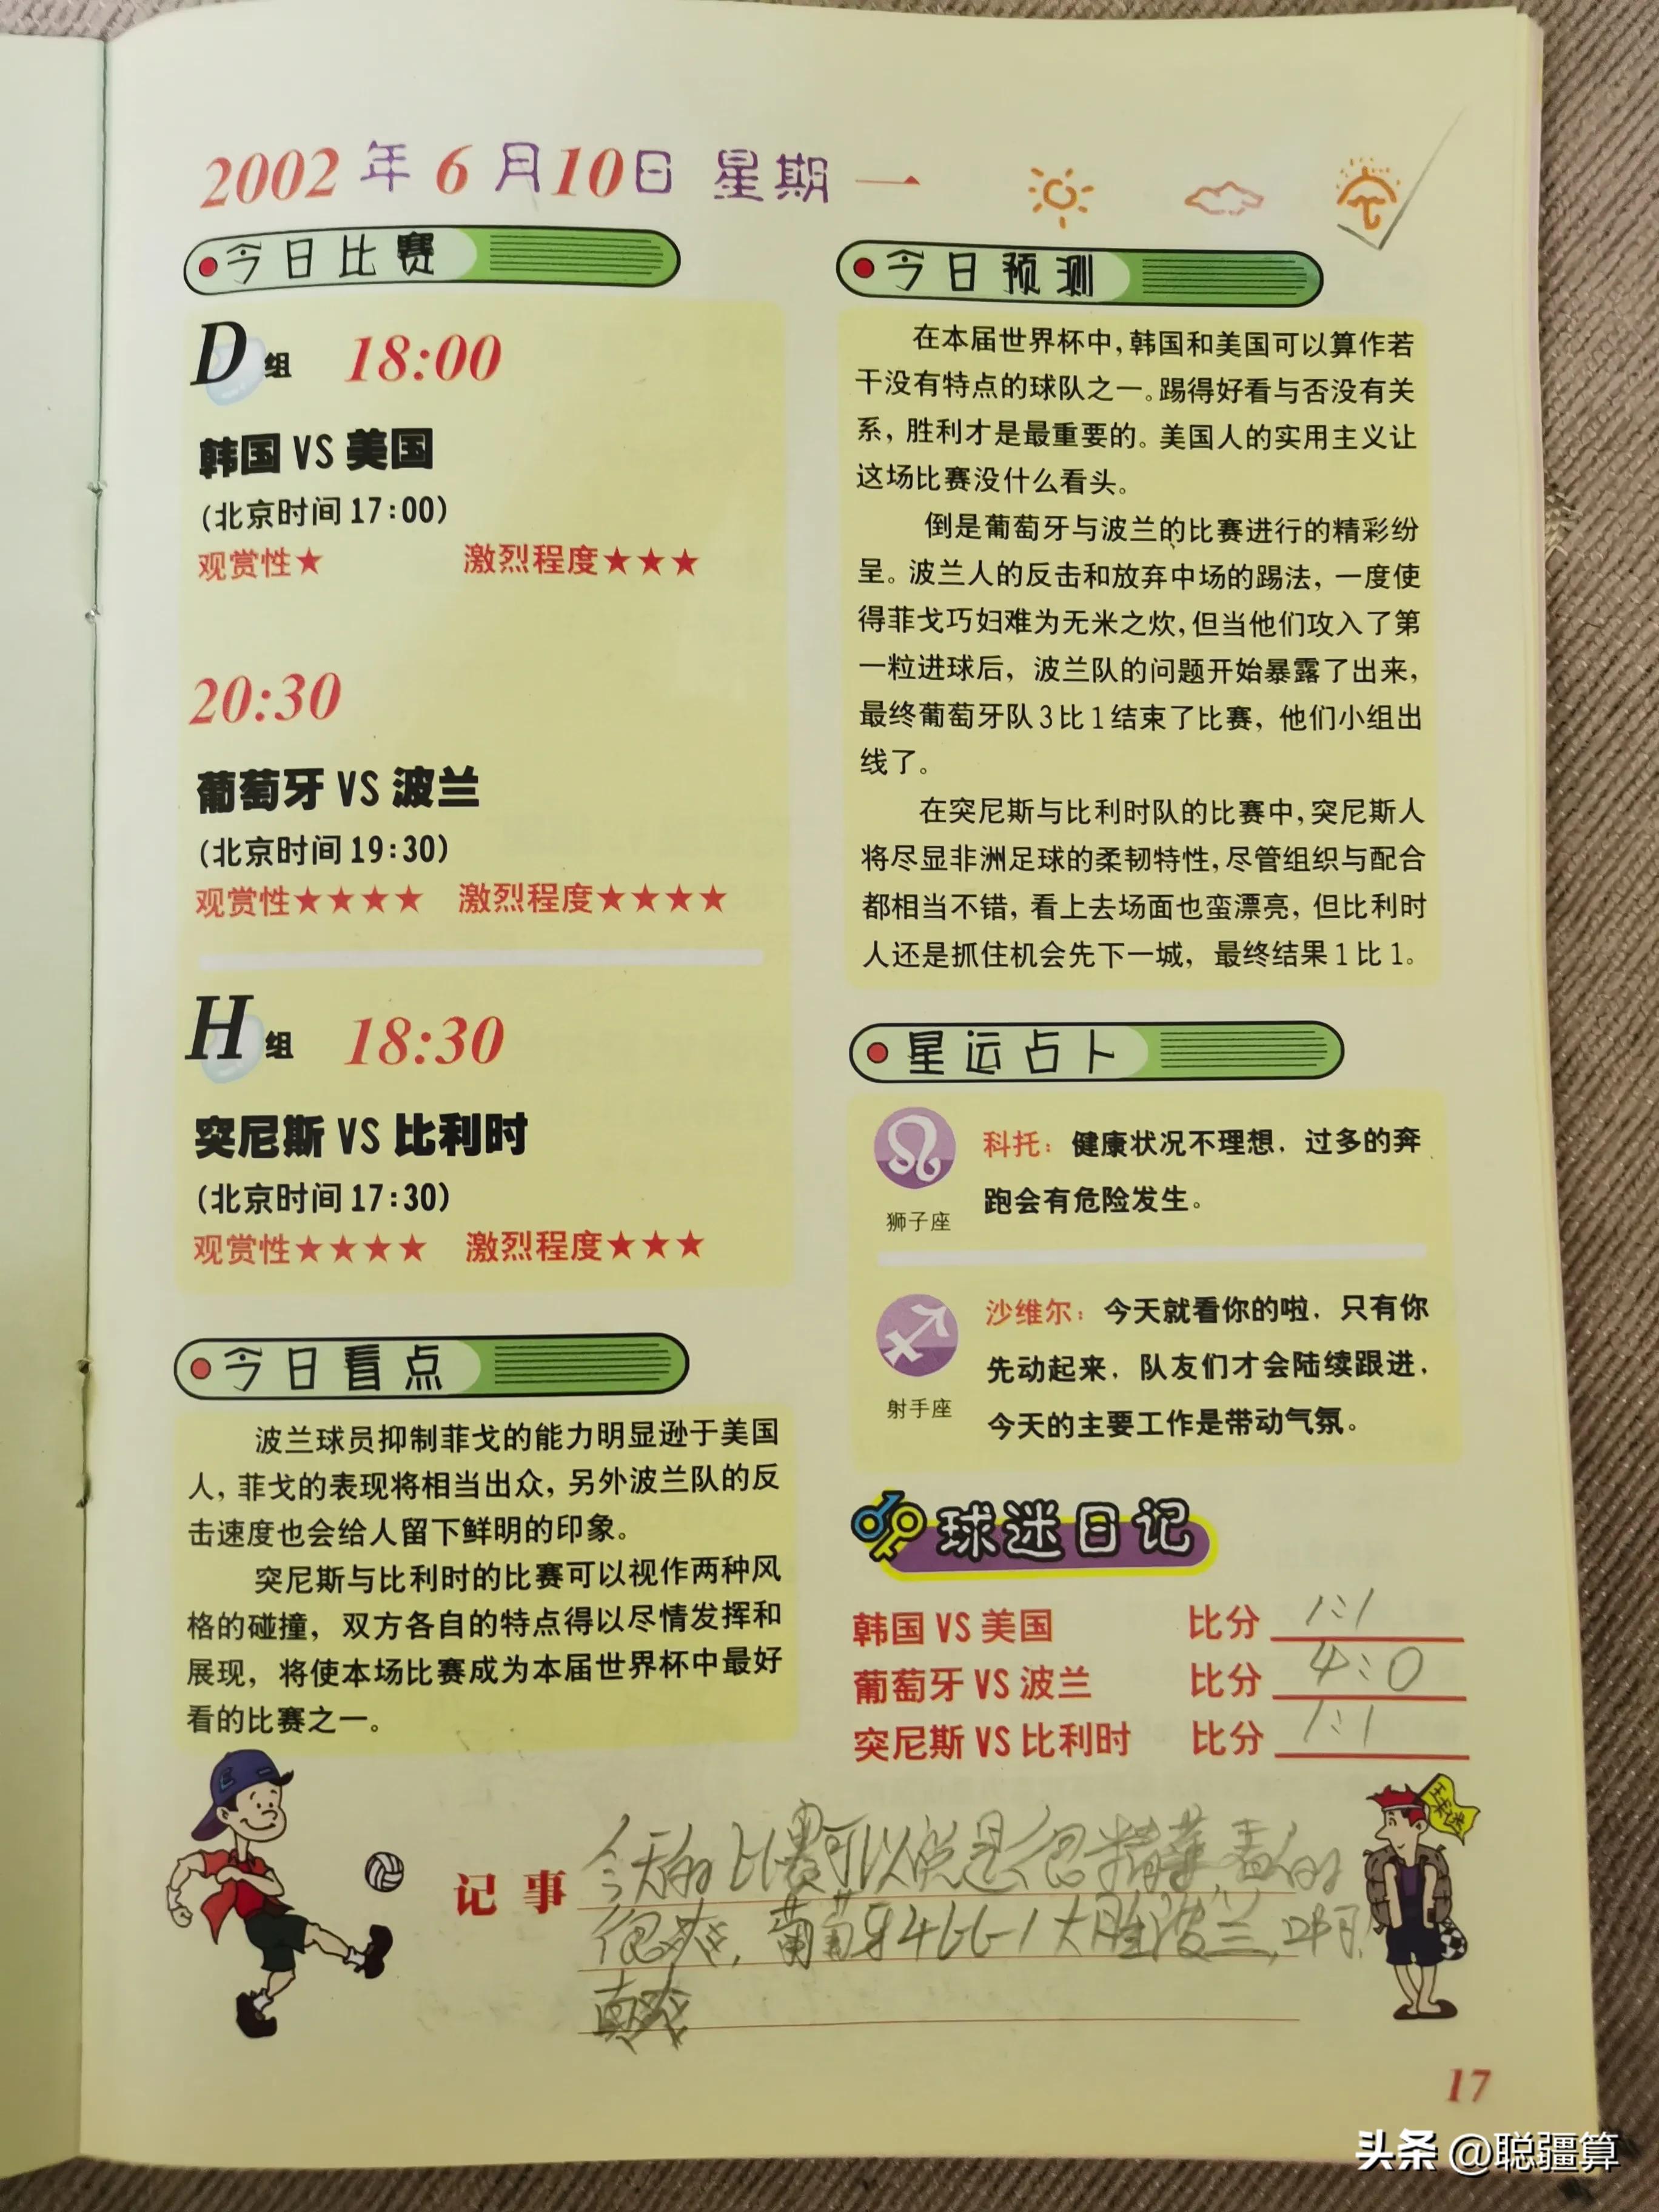 2002年6月10日 星期一
今日比赛
D组 18:00
韩国 VS 美国
(北京时间17:00)
观赏性★ 激烈程度★★★
20:30
葡萄牙 VS 波兰
(北京时间19:30)
观赏性★★★★ 激烈程度★★★★
H组 18:30
突尼斯 VS 比利时
(北京时间17:30)
观赏性★★★★ 激烈程度★★★
今日看点
波兰球员抑制菲戈的能力明显逊于美国
人,菲戈的表现将相当出众,另外波兰队的反
击速度也会给人留下鲜明的印象。
突尼斯与比利时的比赛可以视作两种风
格的碰撞，双方各自的特点得以尽情发挥和
展现，将使本场比赛成为本届世界杯中最好
看的比赛之一。
今日预测
在本届世界杯中,韩国和美国可以算作若
干没有特点的球队之一。踢得好看与否没有关
系，胜利才是最重要的。美国人的实用主义让
这场比赛没什么看头。
倒是葡萄牙与波兰的比赛进行的精彩纷
呈。波兰人的反击和放弃中场的踢法，一度使
得菲戈巧妇难为无米之炊,但当他们攻入了第
一粒进球后，波兰队的问题开始暴露了出来，
最终葡萄牙队3比1结束了比赛，他们小组出
线了。
在突尼斯与比利时队的比赛中,突尼斯人
将尽显非洲足球的柔韧特性,尽管组织与配合
都相当不错，看上去场面也蛮漂亮，但比利时
人还是抓住机会先下一城，最终结果1比1。
星运占卜
狮子座
科托：健康状况不理想，过多的奔
跑会有危险发生。
射手座
沙维尔：今天就看你的啦，只有你
先动起来，队友们才会陆续跟进，
今天的主要工作是带动气氛。
球迷日记
韩国 VS 美国 比分 1:1
葡萄牙 VS 波兰 比分 4:0
突尼斯 VS 比利时 比分 1:1
记事
今天的比赛可以说是很精彩,看的
很爽,葡萄牙4比1大胜波兰,
真爽
17
头条 @聪疆算